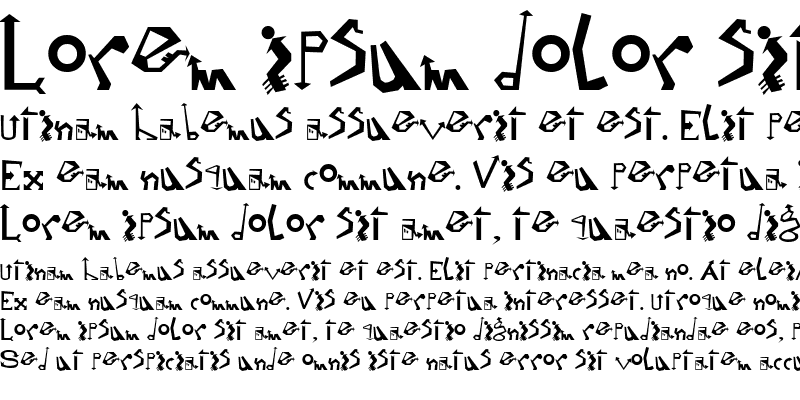 Lorem ipsum dolor sit
Utinam habemus assueverit et est. Elit pe
Ex eam nusquam commune. Vis eu perpetua
Lorem ipsum dolor sit amet, te quaestio dig
Utinam habemus assueverit et est. Elit pertinacia mea no. At elei
Ex eam nusquam commune. Vis eu perpetua interesset. Utroque nom
Lorem ipsum dolor sit amet, te quaestio dignissim repudiandae eos,
Sed ut perspiciatis unde omnis iste natus error sit voluptatem accu